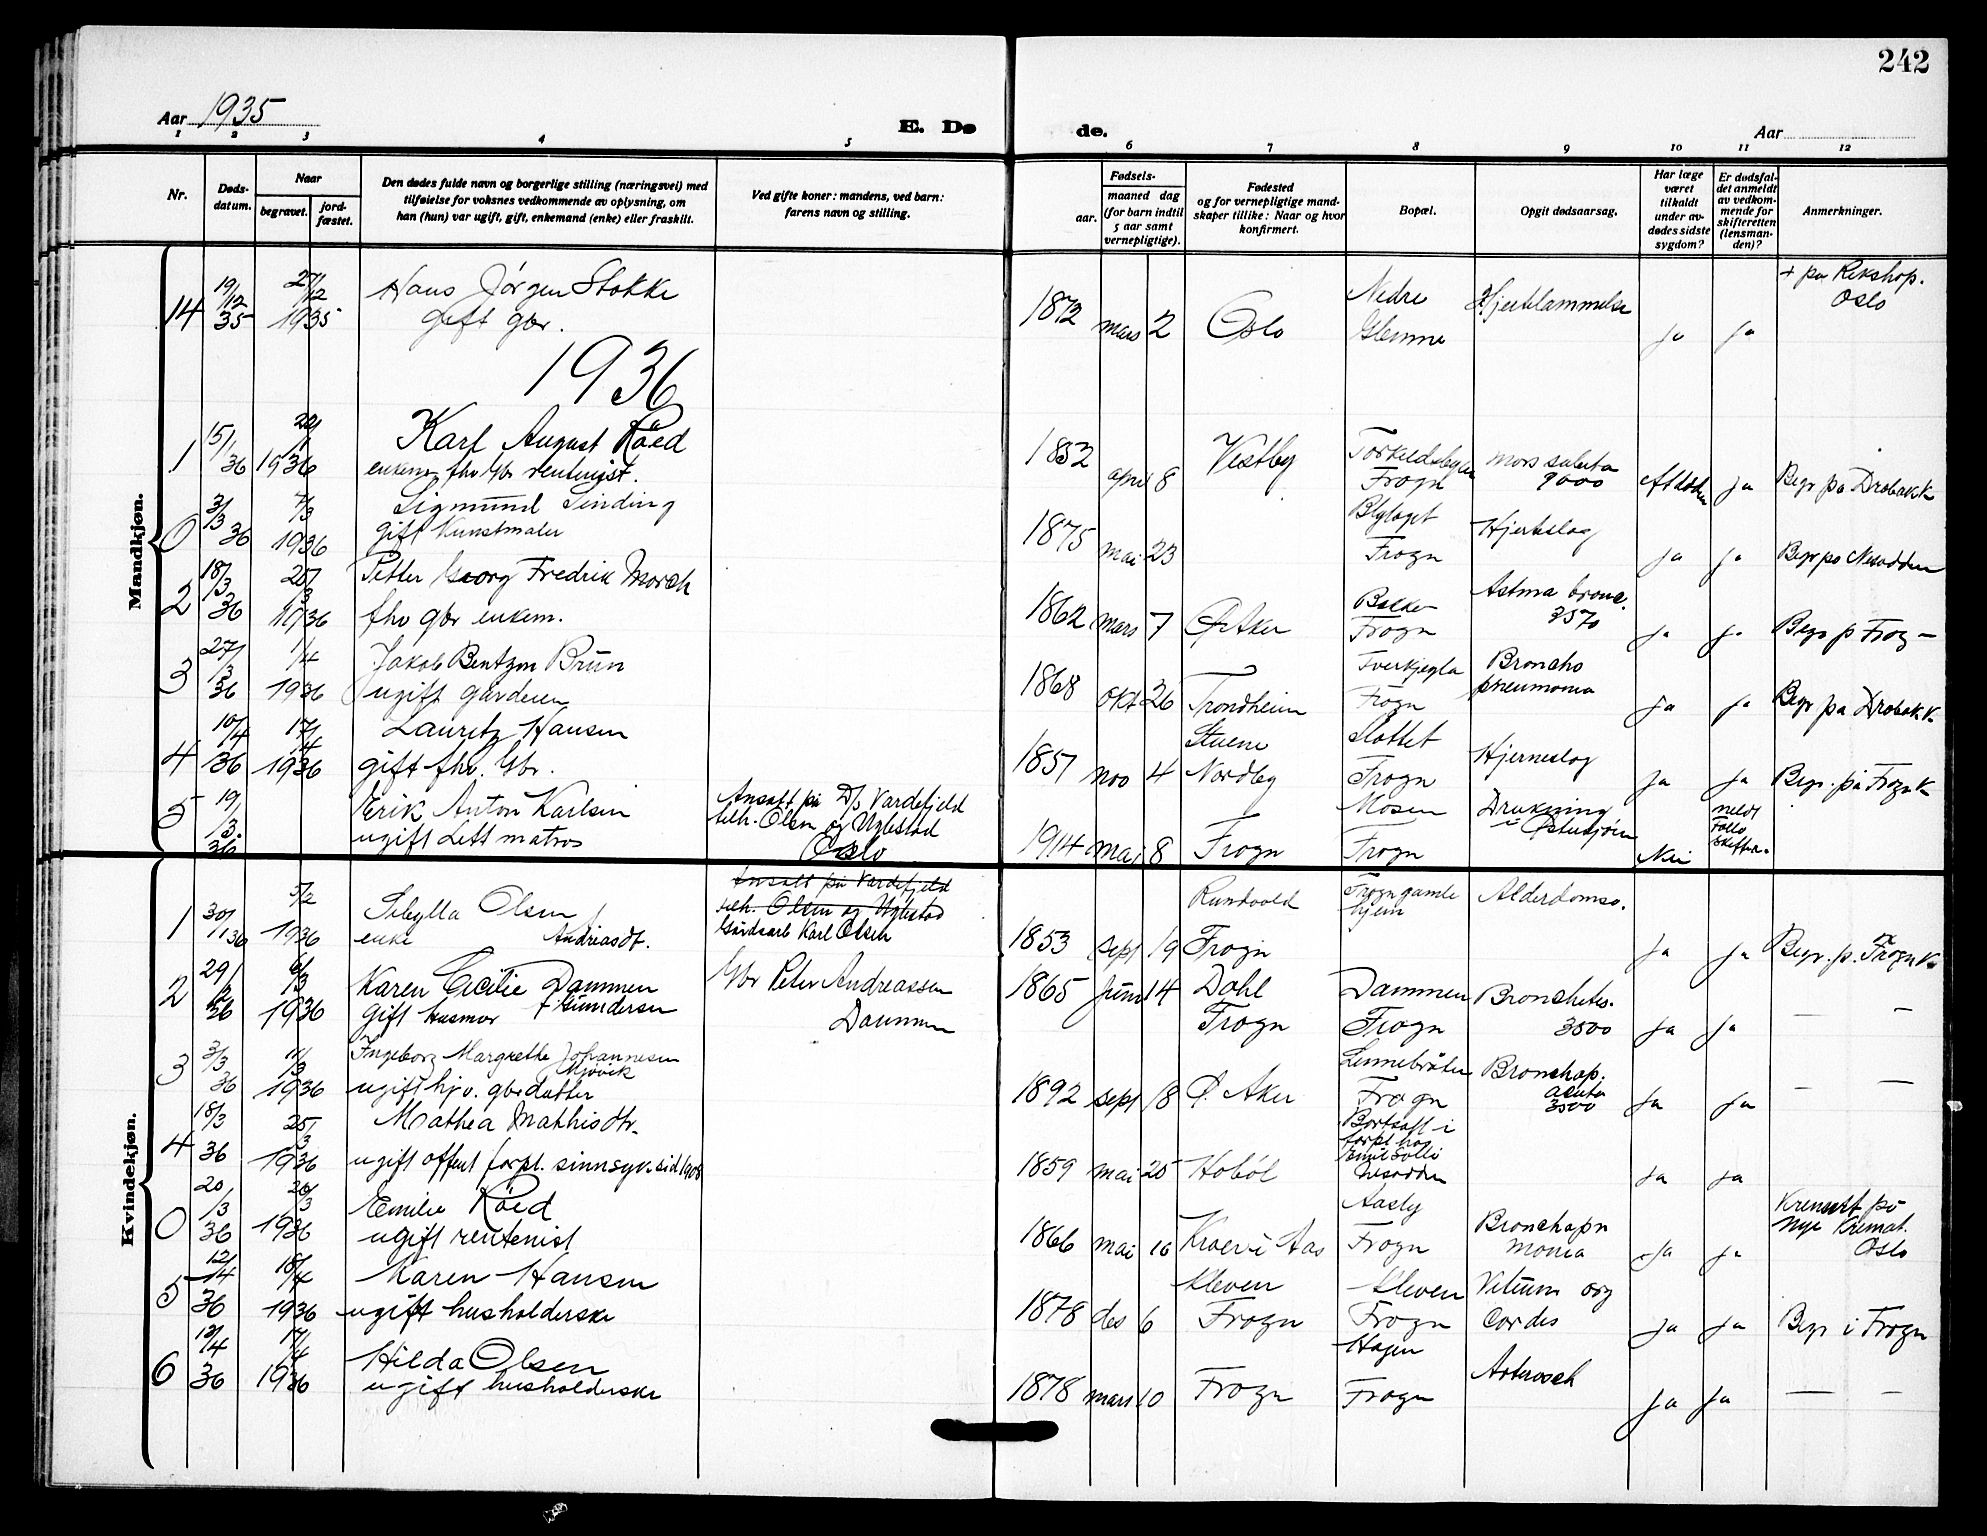 242
Aar 1935
E. Dø de.
Aar
1 2 3 4 5 6 7 8 9 10 11 12
Nr.
Døds-datum.
Naar
begravet.
jord-fæstet.
Den dødes fulde navn og borgerlige stilling (næringsvei) med
tilføielse for voksnes vedkommende av oplysning, om
han (hun) var ugift, gift, enkemand (enke) eller fraskilt.
Ved gifte koner: mandens, ved barn:
farens navn og stilling.
Fødsels-
aar.
maaned dag
(for barn indtil
5 aar samt
vernepligtige).
Fødested
og for vernepligtige mand-
skaper tillike: Naar og hvor
konfirmert.
Bopæl.
Opgit dødsaarsag.
Har læge
været
tilkaldt
under av-
dødes sidste
sygdom?
Er dødsfal-
det anmeldt
av vedkom-
mende for
skifteretten
(lensman-
den)?
Anmerkninger.
Mandkjøn.
14 19/12 35 27/12 1935 Hans Jörgen Stokke
gift gbr.
1872 mars 2 Oslo Nedre Glenne Hjertelammelse ja ja + på Rikshop. Oslo
1936
1 15/1 36 22/1 1936 Karl August Röed
enkem. fhv gbr rentenist.
1852 april 8 Vestby Frogn Mors subita 9000 ja Begr på Drøbak K
0 3/3 36 7/3 1936 Sigmund Sinding
gift Kunstmaler
1875 mai 23 Blylaget Frogn Hjerteslag ja ja Begr på Nesodden
2 18/3 36 25/3 1936 Petter Georg Fredrik Morch
fhv gbr enkem.
1862 mars 7 Ø Aker Bakker Frogn Astma bronc. 3570 ja ja Begr p Frog –
3 27/3 36 1/4 1936 Jakob Bentzon Brun
ugift gårdeier
1868 okt 26 Trondheim Frogn Broncho pneumonia ja ja Begr på Drøbak K.
4 10/4 36 17/4 1936 Lauritz Hansen
gift fhv. gbr.
1857 nov 4 Stuene Nordby Slottet Frogn Hjerneslag ja ja Begr. på Frogn K
5 19/3. 36 Erik Anton Karlsen
ugift Lettmatros
Ansatt på D/s Vardefjeld
tilh. Olsen og Ugelstad
Oslo
1914 mai 8 Frogn Mosen Frogn Drukning i Østersjöen Nei meldt Follo skifter.
Kvindekjøn.
1 30/1 36 5/2 1936 Sibylla Olsen
enke Andreasdt.
Ansatt på Vardefjeld
tilh. Olsen og Ugelstad
Gårdsarb Karl Olsen
1853 sept 19 Rundvold Frogn Frogn gamle hjem Alderdomss. ja ja Begr. p. Frogn K
2 29/2 36 6/3 1936 Karen Cecilie Dammen
gift husmor f. Gundersen
Gbr Peter Andreassen
Dammen
1865 juni 14 Dahl Frogn Dammen Frogn Bronchites. 3500 ja ja — –
3 3/3 36 11/3 1936 Ingeborg Margrethe Johannesen
Mjövik
ugift hjv. gbrdatter
1892 sept 18 Ø. Aker Linnebråten Frogn Bronchop. acuta 3500 ja ja — —
4 18/3 36 25/3 1936 Mathea Mathisdtr.
ugift offent forpl. sinnsyk. sid 1908
1859 mai 25 Hobøl Bortsatt i forpl hos Emil Solli Nesodden ja ja
0 20/3 36 26/3 1936 Emilie Röed
ugift rentenist
1866 mai 16 Kroer i Aas Aasly Frogn Bronchopn monia ja ja Kremert på nye Kremat. Oslo
5 12/4 36 18/4 1936 Karen Hansen
ugift husholderske
1878 des 6 Kleven Frogn Kleven Frogn Vitium org Cordis ja ja Begr i Frogn
6 12/4 36 17/4 1936 Hilda Olsen
ugift husholderske
1878 mars 10 Frogn Hagen Frogn Arterosch ja ja — –